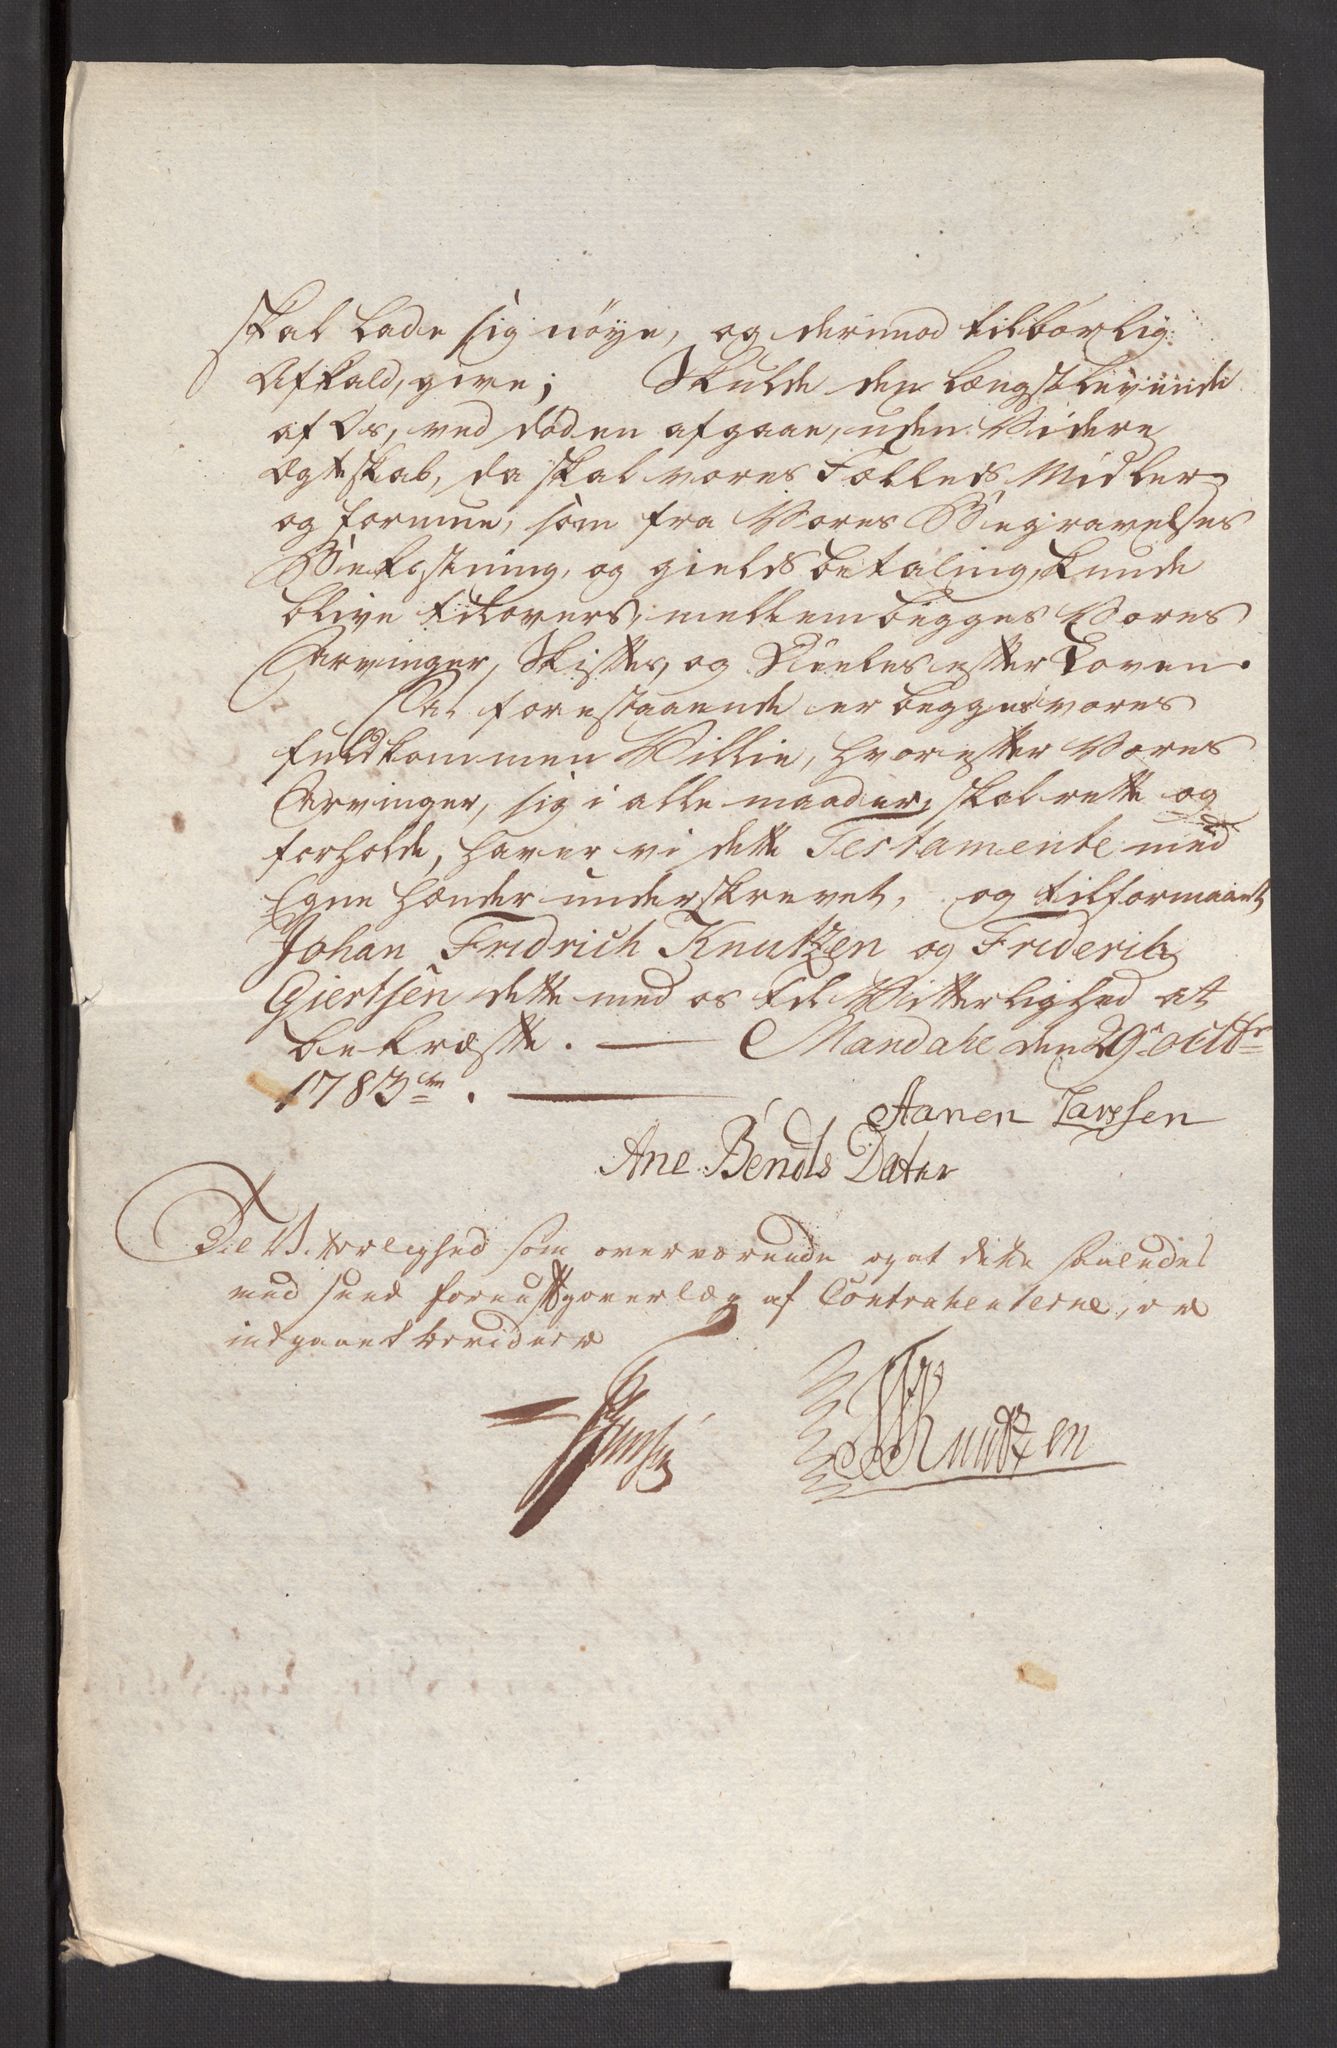 skal lade sig nöye, og derimod tilbørlig
Afkald, give; Skulde den længstlevende
af Os, ved døden afgaae, uden Videre
Egteskab, da skal vores Fælleds Midler
og formue, som fra Vores Begravelses
Bekostning, og gields betaling, kunde
blive tilovers, mellem begges Vores
Arvinger, Skiftes, og Deeles efter Loven.
At forestaaende er begges vores
fuldkommen Villie, hvorefter Vores
Arvinger, sig i alle maader, skal rette og
forholde, haver vi dette Testamente med
Egne hænder underskrevet, og tilformaaet
Johan Fridrich Knutzen og Friderik
Giertsen dette med os til Vitterlighed at
bekræfte. — Mandahl den 29de octbr
1783tve. —
Aanen Larssen
Ane Bendts Dater
Til Vitterlighed som overværende og at dette saaledes
med sund fornuft og overlæg af Contrahenterne, er
indgaaet bevidner
JFKnutzen